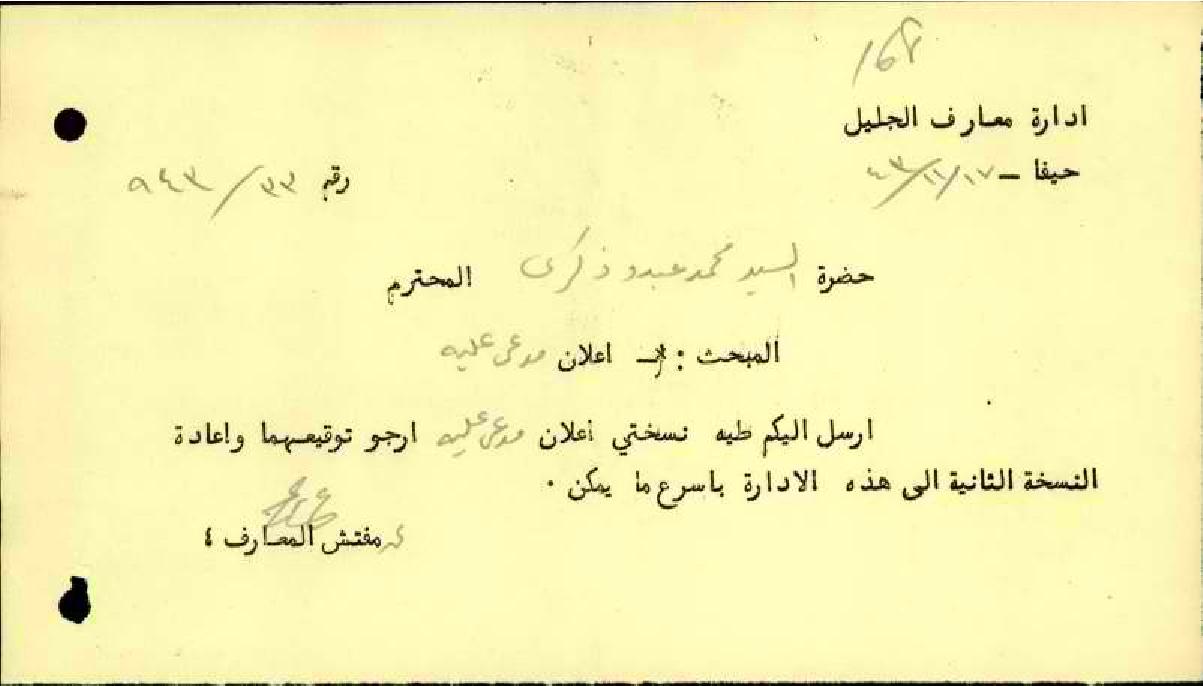 168
ادارة معارف الجليل
حيفا – ١٧/١١/٤٣
رقم ٣٣/٩٤٣
حضرة السيد محمد عبدو ذكرى المحترم
المبحث : – اعلان مدعى عليه
ارسل اليكم طيه نسختي اعلان مدعى عليه ارجو توقيعهما واعادة
النسخة الثانية الى هذه الادارة باسرع ما يمكن ٠
مفتش المعارف ٤